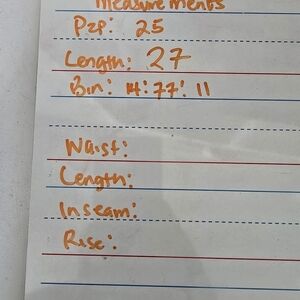 Measurements
P2P: 25
Length: 27
Bin: 14:77:11
Waist:
Length:
Inseam:
Rise: